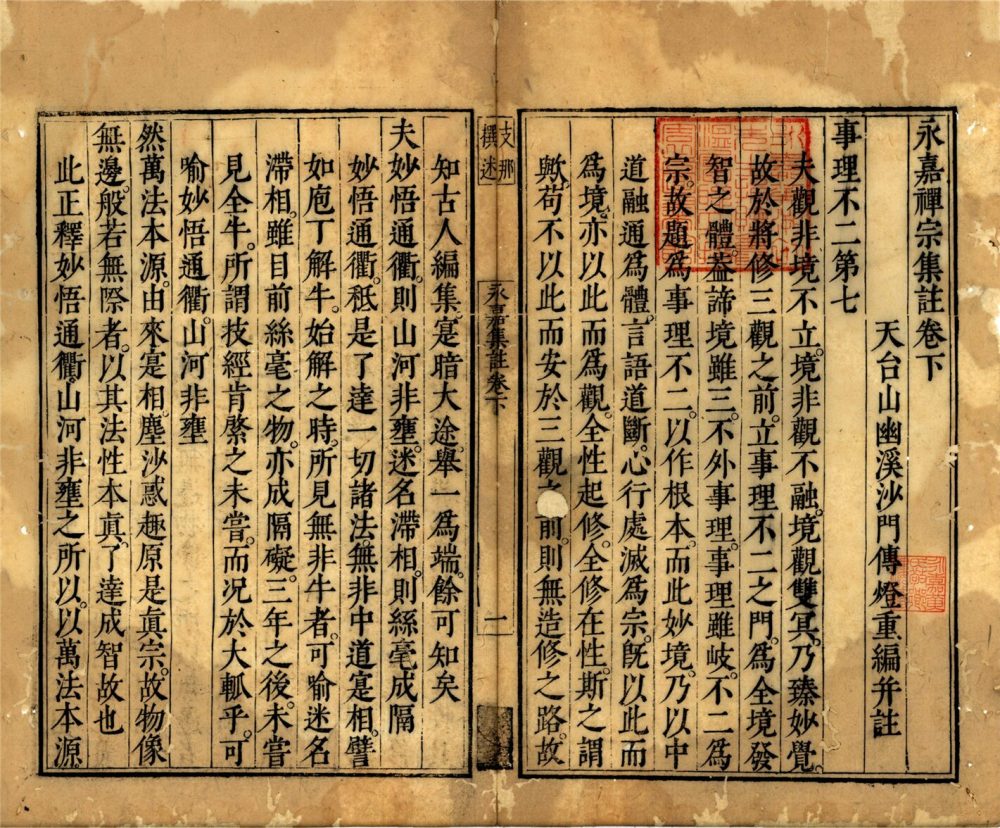 永嘉禪宗集註卷下
天台山幽溪沙門傳燈重編幷註
事理不二第七
夫觀非境不立。境非觀不融。境觀雙冥。乃臻妙覺。
故於將修三觀之前。立事理不二之門。爲全境發
智之體。葢諦境雖三。不外事理。事理雖岐。不二爲
宗。故題爲事理不二。以作根本。而此妙境。乃以中
道融通爲體。言語道斷。心行處滅爲宗。旣以此而
爲境。亦以此而爲觀。全性起修。全修在性。斯之謂
歟。苟不以此而安於三觀之前。則無造修之路。故
支那
撰述
永嘉集註卷下
一
知古人編集。寔暗大途。舉一爲端。餘可知矣
夫妙悟通衢。則山河非壅。迷名滯相。則絲毫成隔
妙悟通衢。秪是了達一切諸法無非中道寔相。譬
如庖丁解牛。始解之時。所見無非牛者。可喻迷名
滯相。雖目前絲毫之物。亦成隔礙。三年之後。未嘗
見全牛。所謂技經肯綮之未嘗。而况於大軱乎。可
喻妙悟通衢。山河非壅
然萬法本源。由來寔相。塵沙惑趣。原是眞宗。故物像
無邊。般若無際者。以其法性本眞。了達成智故也
此正釋妙悟通衢。山河非壅之所以。以萬法本源。